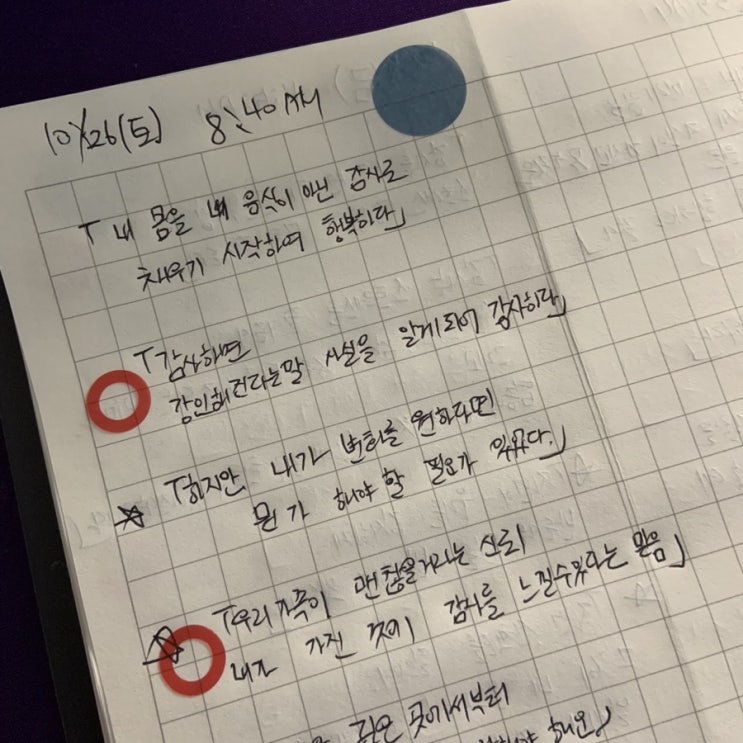 10/26(토) 8:40 AM
「내 몸을 내 음식이 아닌 감사로
채우기 시작하여 행복하다」
「감사하면
강인해진다는말 사실을 알게되어 감사하다」
☆ 「하지만 내가 변화를 원하다면
뭔가 해야 할 필요가 있다.」
☆ 「우리가족이 괜찮을거라는 신뢰
내가 가진 것에 감사를 느낄수있다는 믿음」
깊은 곳에서부터
해요」